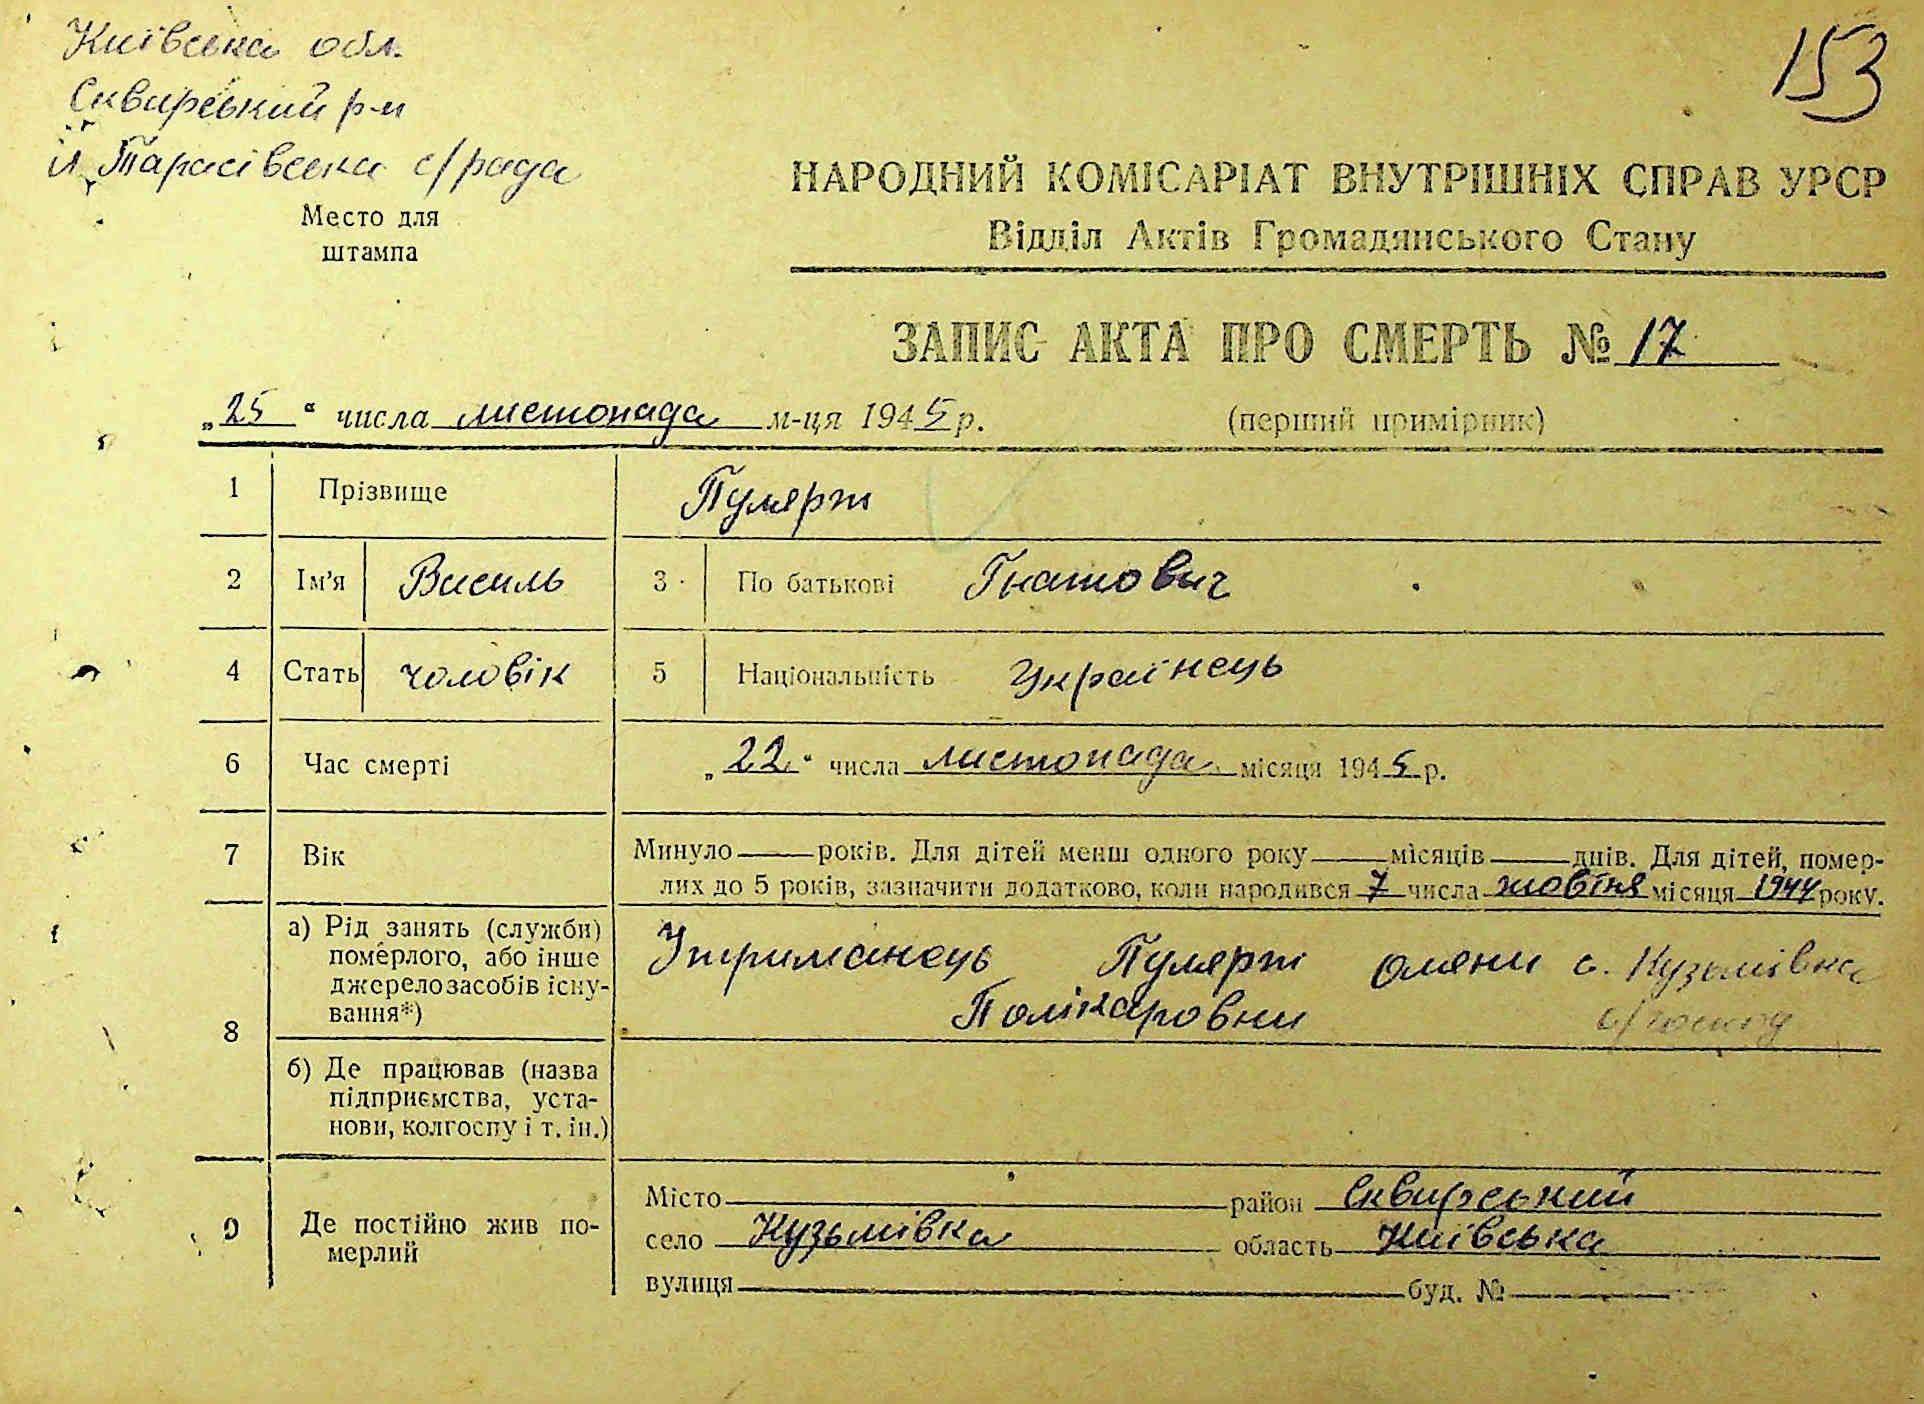 Київська обл.
Сквирський р-н
Тарасівська с/рада
153
Место для
штампа
НАРОДНИЙ КОМІСАРІАТ ВНУТРІШНІХ СПРАВ УРСР
Відділ Актів Громадянського Стану
ЗАПИС АКТА ПРО СМЕРТЬ № 17
„25“ числа листопада м-ця 1945 р.
(перший примірник)
1 Прізвище Пулярт
2 Ім'я Василь 3 По батькові Гнатович
4 Стать чоловік 5 Національність Українець
6 Час смерті „22“ числа листопада місяця 1945 р.
7 Вік Минуло — років. Для дітей менш одного року — місяців — днів. Для дітей, помер-
лих до 5 років, зазначити додатково, коли народився 7 числа жовтня місяця 1944 року.
8 а) Рід занять (служби)
померлого, або інше
джерело засобів існу-
вання*)
Утриманець Пулярт Олени с. Кузьмівка
Полікаровни
б) Де працював (назва
підприємства, уста-
нови, колгоспу і т. ін.)
9 Де постійно жив по-
мерлий
Місто район Сквирський
село Кузьмівка область Київська
вулиця буд. №